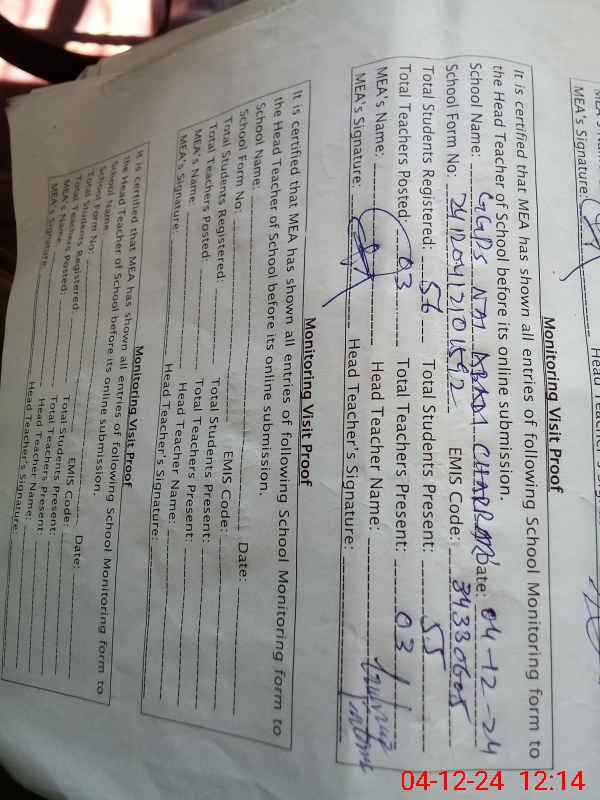 MEA's Signature:
Monitoring Visit Proof
It is certified that MEA has shown all entries of following School Monitoring form to
the Head Teacher of School before its online submission.
School Name: GGPS NAI ABADI CHAPPAR Date: 04-12-24
School Form No: EMIS Code: 34330605
Total Students Registered: 56 Total Students Present: 55
Total Teachers Posted: 03 Total Teachers Present: 03
MEA's Name: Head Teacher Name:
MEA's Signature: Head Teacher's Signature:
Monitoring Visit Proof
It is certified that MEA has shown all entries of following School Monitoring form to
the Head Teacher of School before its online submission.
School Name: Date:
School Form No: EMIS Code:
Total Students Registered: Total Students Present:
Total Teachers Posted: Total Teachers Present:
MEA's Name: Head Teacher Name:
MEA's Signature: Head Teacher's Signature:
Monitoring Visit Proof
It is certified that MEA has shown all entries of following School Monitoring form to
the Head Teacher of School before its online submission.
School Name: Date:
School Form No: EMIS Code:
Total Students Registered: Total Students Present:
Total Teachers Posted: Total Teachers Present:
MEA's Name: Head Teacher Name:
MEA's Signature: Head Teacher's Signature:
04-12-24 12:14